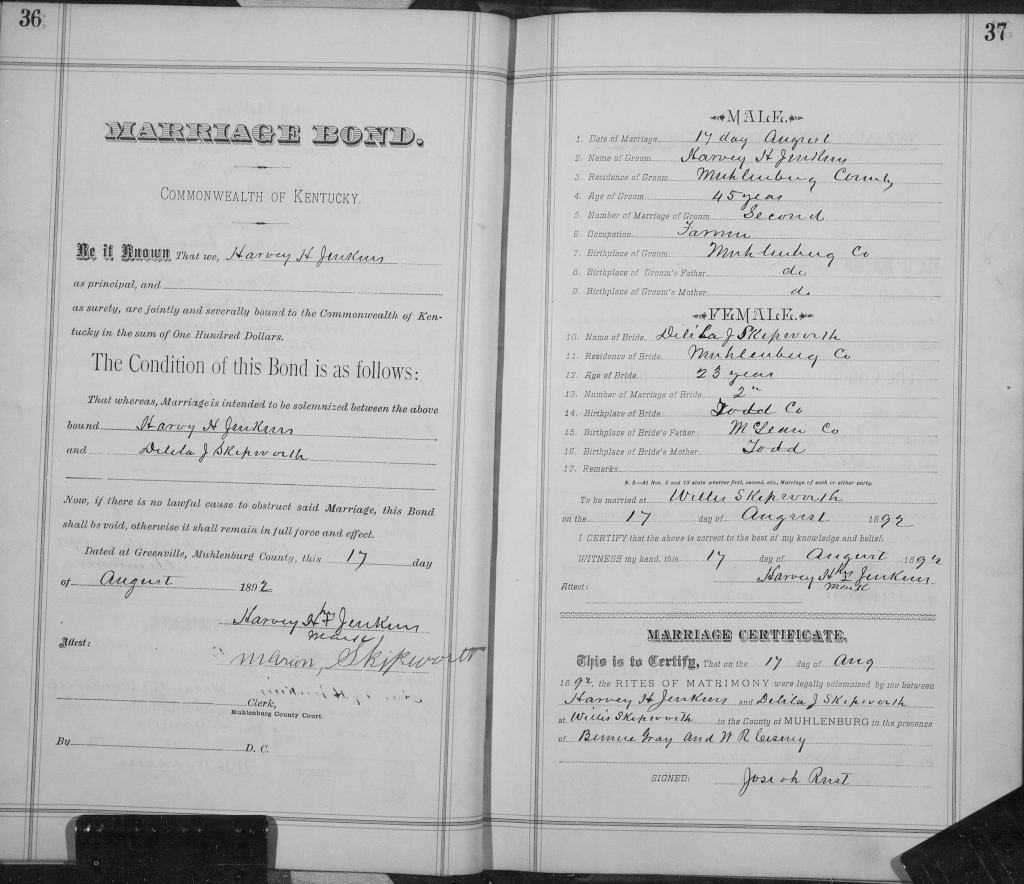 36
MARRIAGE BOND.
COMMONWEALTH OF KENTUCKY.
Be it Known That we, Harvey H Jenkins
as principal, and
as surety, are jointly and severally bound to the Commonwealth of Ken-
tucky in the sum of One Hundred Dollars.
The Condition of this Bond is as follows:
That whereas, Marriage is intended to be solemnized between the above
bound Harvy H Jenkins
and Delila J Skipworth
Now, if there is no lawful cause to obstruct said Marriage, this Bond
shall be void, otherwise it shall remain in full force and effect.
Dated at Greenville, Muhlenburg County, this 17 day
of August 1892
Harvey H his X Jenkins
mark
Attest:
Marion, Skipworth
Clerk,
Muhlenburg County Court.
By D. C.
37
MALE.
1. Date of Marriage 17 day August
2. Name of Groom Harvey H Jenkins
3. Residence of Groom Muhlenburg County
4. Age of Groom 45 year
5. Number of Marriage of Groom Second
6. Occupation Farmer
7. Birthplace of Groom Muhlenburg Co
8. Birthplace of Groom's Father do
9. Birthplace of Groom's Mother do
FEMALE.
10. Name of Bride Delila J Skipworth
11. Residence of Bride Muhlenburg Co
12. Age of Bride 23 year
13. Number of Marriage of Bride 2n
14. Birthplace of Bride Todd Co
15. Birthplace of Bride's Father McLean Co
16. Birthplace of Bride's Mother Todd
17. Remarks
N. B.—At Nos. 5 and 13 state whether first, second, etc., Marriage of each or either party.
To be married at Willis Skipworth
on the 17 day of August 1892
I CERTIFY that the above is correct to the best of my knowledge and belief.
WITNESS my hand, this 17 day of August 1892
Harvey H his X Jenkins
mark
Attest:
MARRIAGE CERTIFICATE.
This is to Certify, That on the 17 day of Aug
1892, the RITES OF MATRIMONY were legally solemnized by me between
Harvey H Jenkins and Delila J Skipworth
at Willis Skipworth in the County of MUHLENBURG in the presence
of Bennie Gray and W R
SIGNED: Josiah Rust